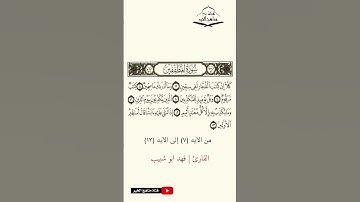 سُورَةُ المُطَفِّفِينَ
كَلَّا إِنَّ كِتَٰبَ الْفُجَّارِ لَفِي سِجِّينٍ ٧ وَمَا أَدْرَىٰكَ مَا سِجِّينٌ ٨ كِتَٰبٌ
مَّرْقُومٌ ٩ وَيْلٌ يَوْمَئِذٍ لِّلْمُكَذِّبِينَ ١٠ الَّذِينَ يُكَذِّبُونَ بِيَوْمِ الدِّينِ ١١
وَمَا يُكَذِّبُ بِهِ إِلَّا كُلُّ مُعْتَدٍ أَثِيمٍ ١٢ إِذَا تُتْلَىٰ عَلَيْهِ ءَايَٰتُنَا قَالَ أَسَٰطِيرُ
الْأَوَّلِينَ ١٣
من الايه (٧) إلى الايه (١٣)
القارئ | فهد ابو شبيب
قناة مناهج الخير